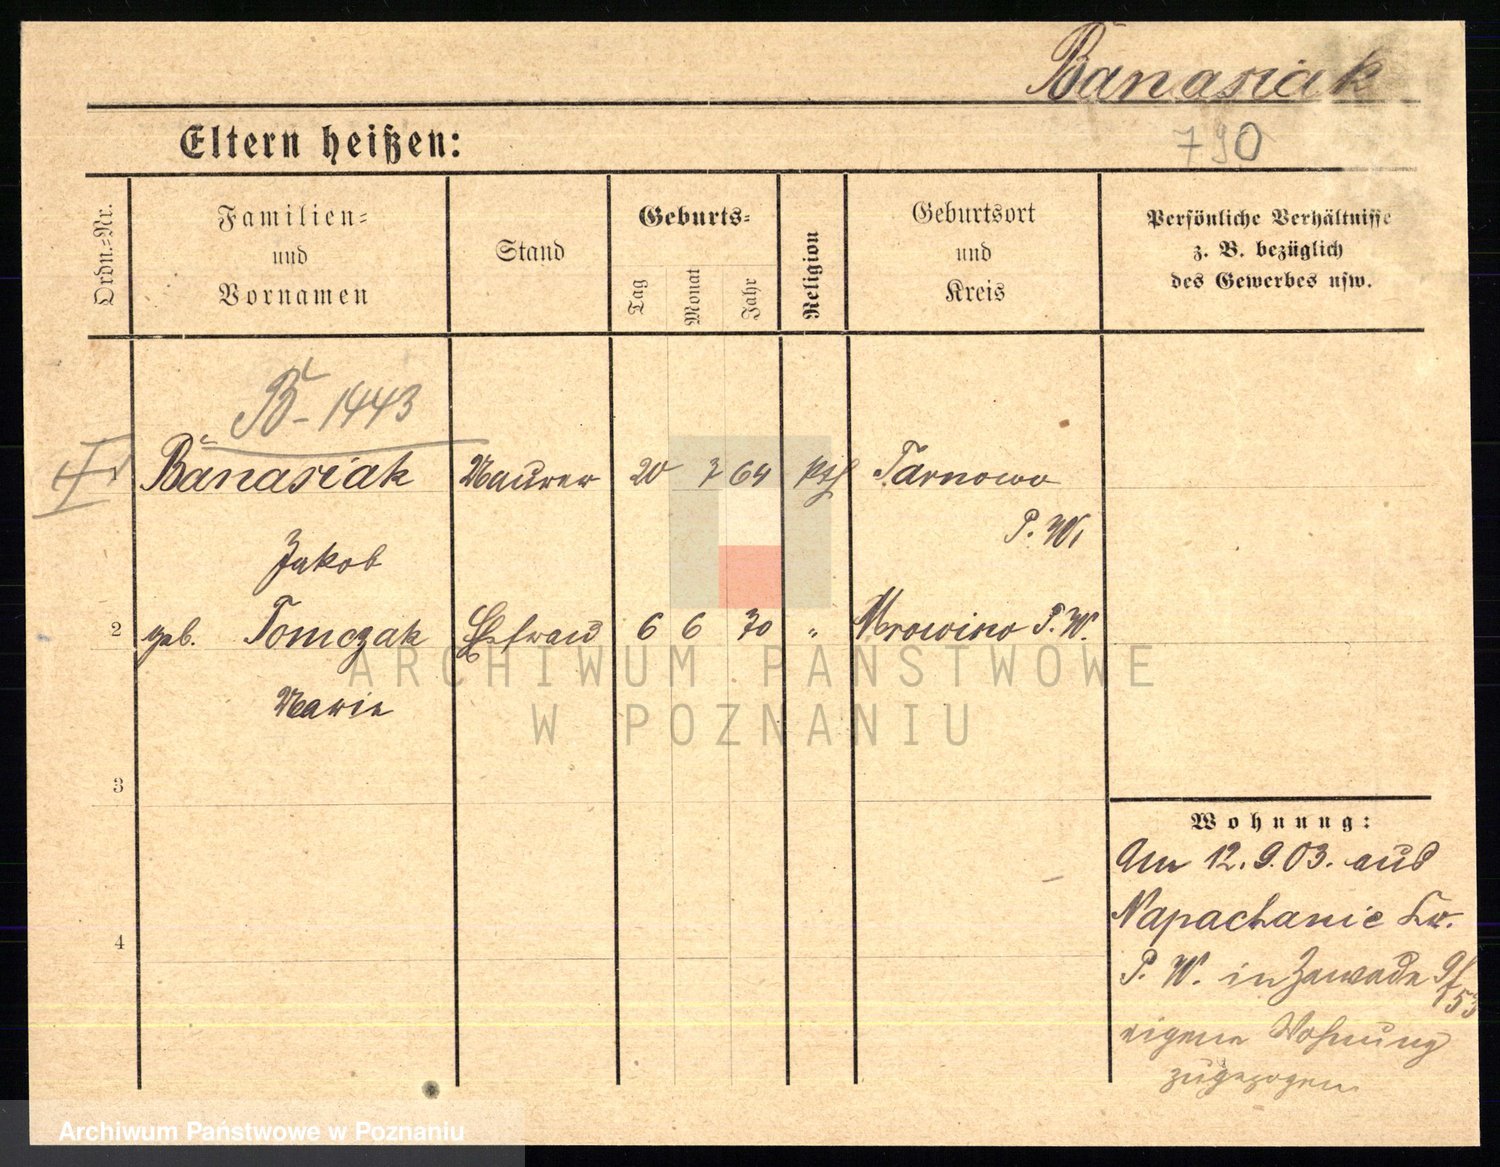 Banasiak
Eltern heißen:
790
Ordn.=Nr.
Familien=
und
Vornamen
Stand
Geburts=
Tag
Monat
Jahr
Religion
Geburtsort
und
Kreis
Persönliche Verhältnisse
z. B. bezüglich
des Gewerbes usw.
B - 1443
1 Banasiak Maurer 20 7 64 kth Tarnowo
P. W.
Jakob
2 geb. Tomczak Ehefrau 6 6 70 " Mrowino P. W.
Marie
ARCHIWUM PAŃSTWOWE
W POZNANIU
3
4
Wohnung:
Am 12.9.03. aus
Napachanie Kr.
P. W. in Zawade 9/153
eigene Wohnung
zugezogen
Archiwum Państwowe w Poznaniu